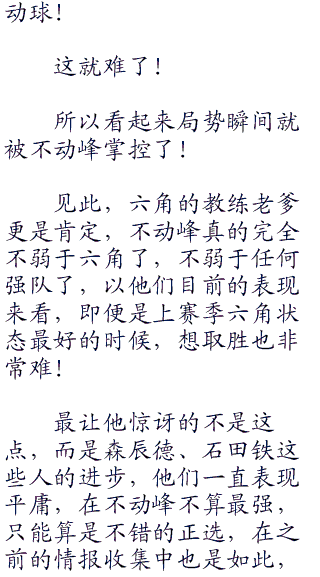 动球！
这就难了！
所以看起来局势瞬间就
被不动峰掌控了！
见此，六角的教练老爹
更是肯定，不动峰真的完全
不弱于六角了，不弱于任何
强队了，以他们目前的表现
来看，即便是上赛季六角状
态最好的时候，想取胜也非
常难！
最让他惊讶的不是这
点，而是森辰德、石田铁这
些人的进步，他们一直表现
平庸，在不动峰不算最强，
只能算是不错的正选，在之
前的情报收集中也是如此，